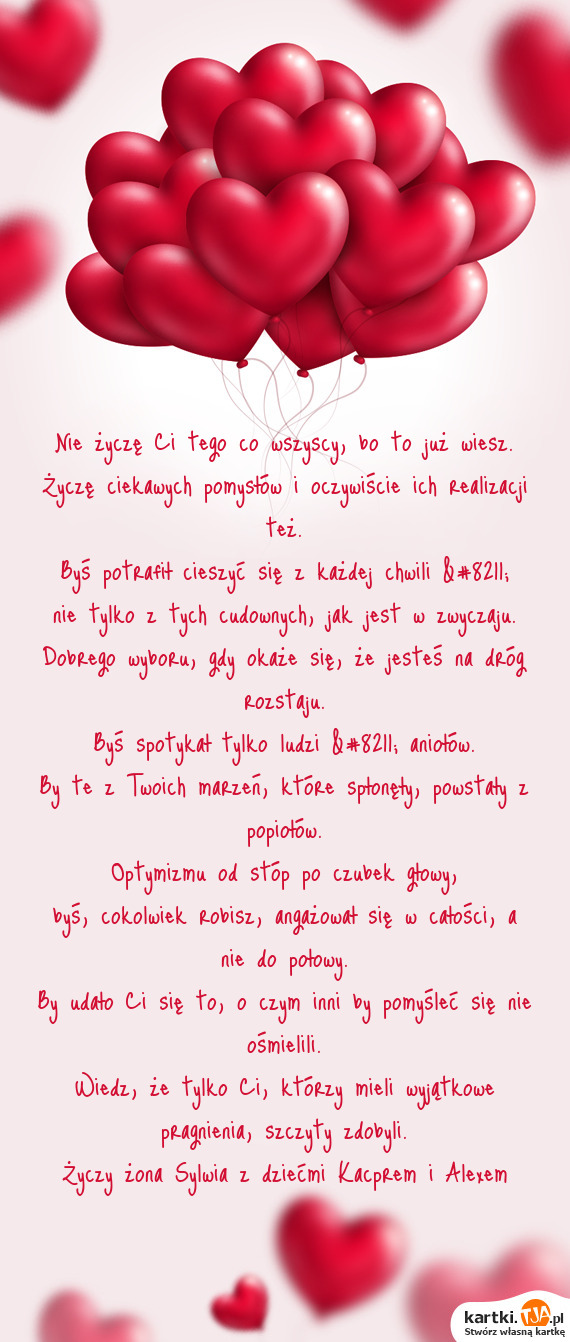 Nie życzę Ci tego co wszyscy, bo to już wiesz.
Życzę ciekawych pomysłów i oczywiście ich realizacji
też.
Byś potrafił cieszyć się z każdej chwili &#8211;
nie tylko z tych cudownych, jak jest w zwyczaju.
Dobrego wyboru, gdy okaże się, że jesteś na dróg
rozstaju.
Byś spotykał tylko ludzi &#8211; aniołów.
By te z Twoich marzeń, które spłonęły, powstały z
popiołów.
Optymizmu od stóp po czubek głowy,
byś, cokolwiek robisz, angażował się w całości, a
nie do połowy.
By udało Ci się to, o czym inni by pomyśleć się nie
ośmielili.
Wiedz, że tylko Ci, którzy mieli wyjątkowe
pragnienia, szczyty zdobyli.
Życzy żona Sylwia z dziećmi Kacprem i Alexem
kartki.TJA.pl
Stwórz własną kartkę